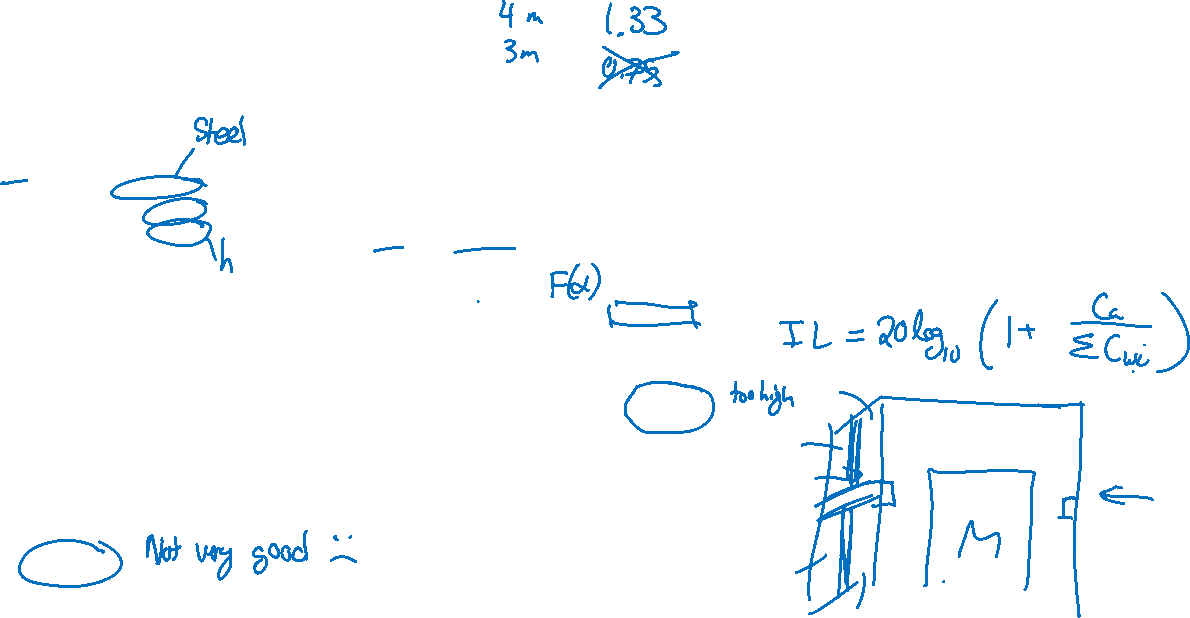 4 m 1.33
3m 0.75
Steel
h
F(α)
IL = 20 log₁₀ (1 + Ca / ΣCwi)
too high
M
Not very good :(